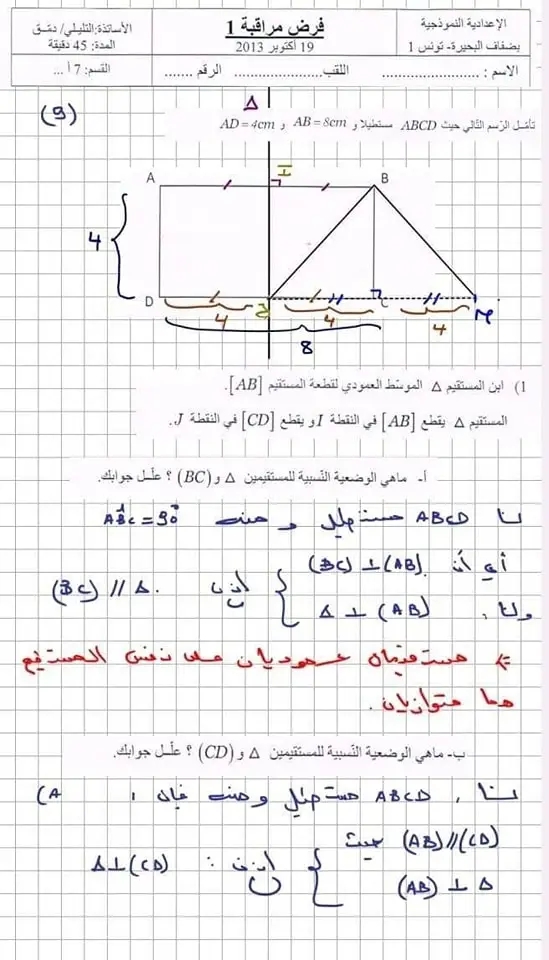 الإعدادية النموذجية
بضفاف البحيرة- تونس 1
فرض مراقبة 1
19 أكتوبر 2013
الأساتذة: التليلي/ دمّق
المدة: 45 دقيقة
الاسم : ........................ اللقب........................ الرقم .......
القسم: 7 أ ...
(9)
تأمّل الرّسم التّالي حيث ABCD مستطيلا و AB = 8cm و AD = 4cm
Δ
A
I
B
4
D
J
C
M
4
4
4
8
1) ابن المستقيم Δ الموسّط العمودي لقطعة المستقيم [AB].
المستقيم Δ يقطع [AB] في النقطة I و يقطع [CD] في النقطة J.
أ- ماهي الوضعية النّسبية للمستقيمين Δ و (BC) ؟ علّل جوابك.
لنا ABCD مستطيل و منه ABC = 90°
أي أن (BC) ⊥ (AB)
ولنا Δ ⊥ (AB)
إذن (BC) // Δ.
مستقيمان عموديان على نفس المستقيم
هما متوازيان.
ب- ماهي الوضعية النّسبية للمستقيمين Δ و (CD) ؟ علّل جوابك.
لنا ABCD مستطيل ومنه فإن (A
(AB) // (CD) حيث
(AB) ⊥ Δ
إذن : Δ ⊥ (CD)